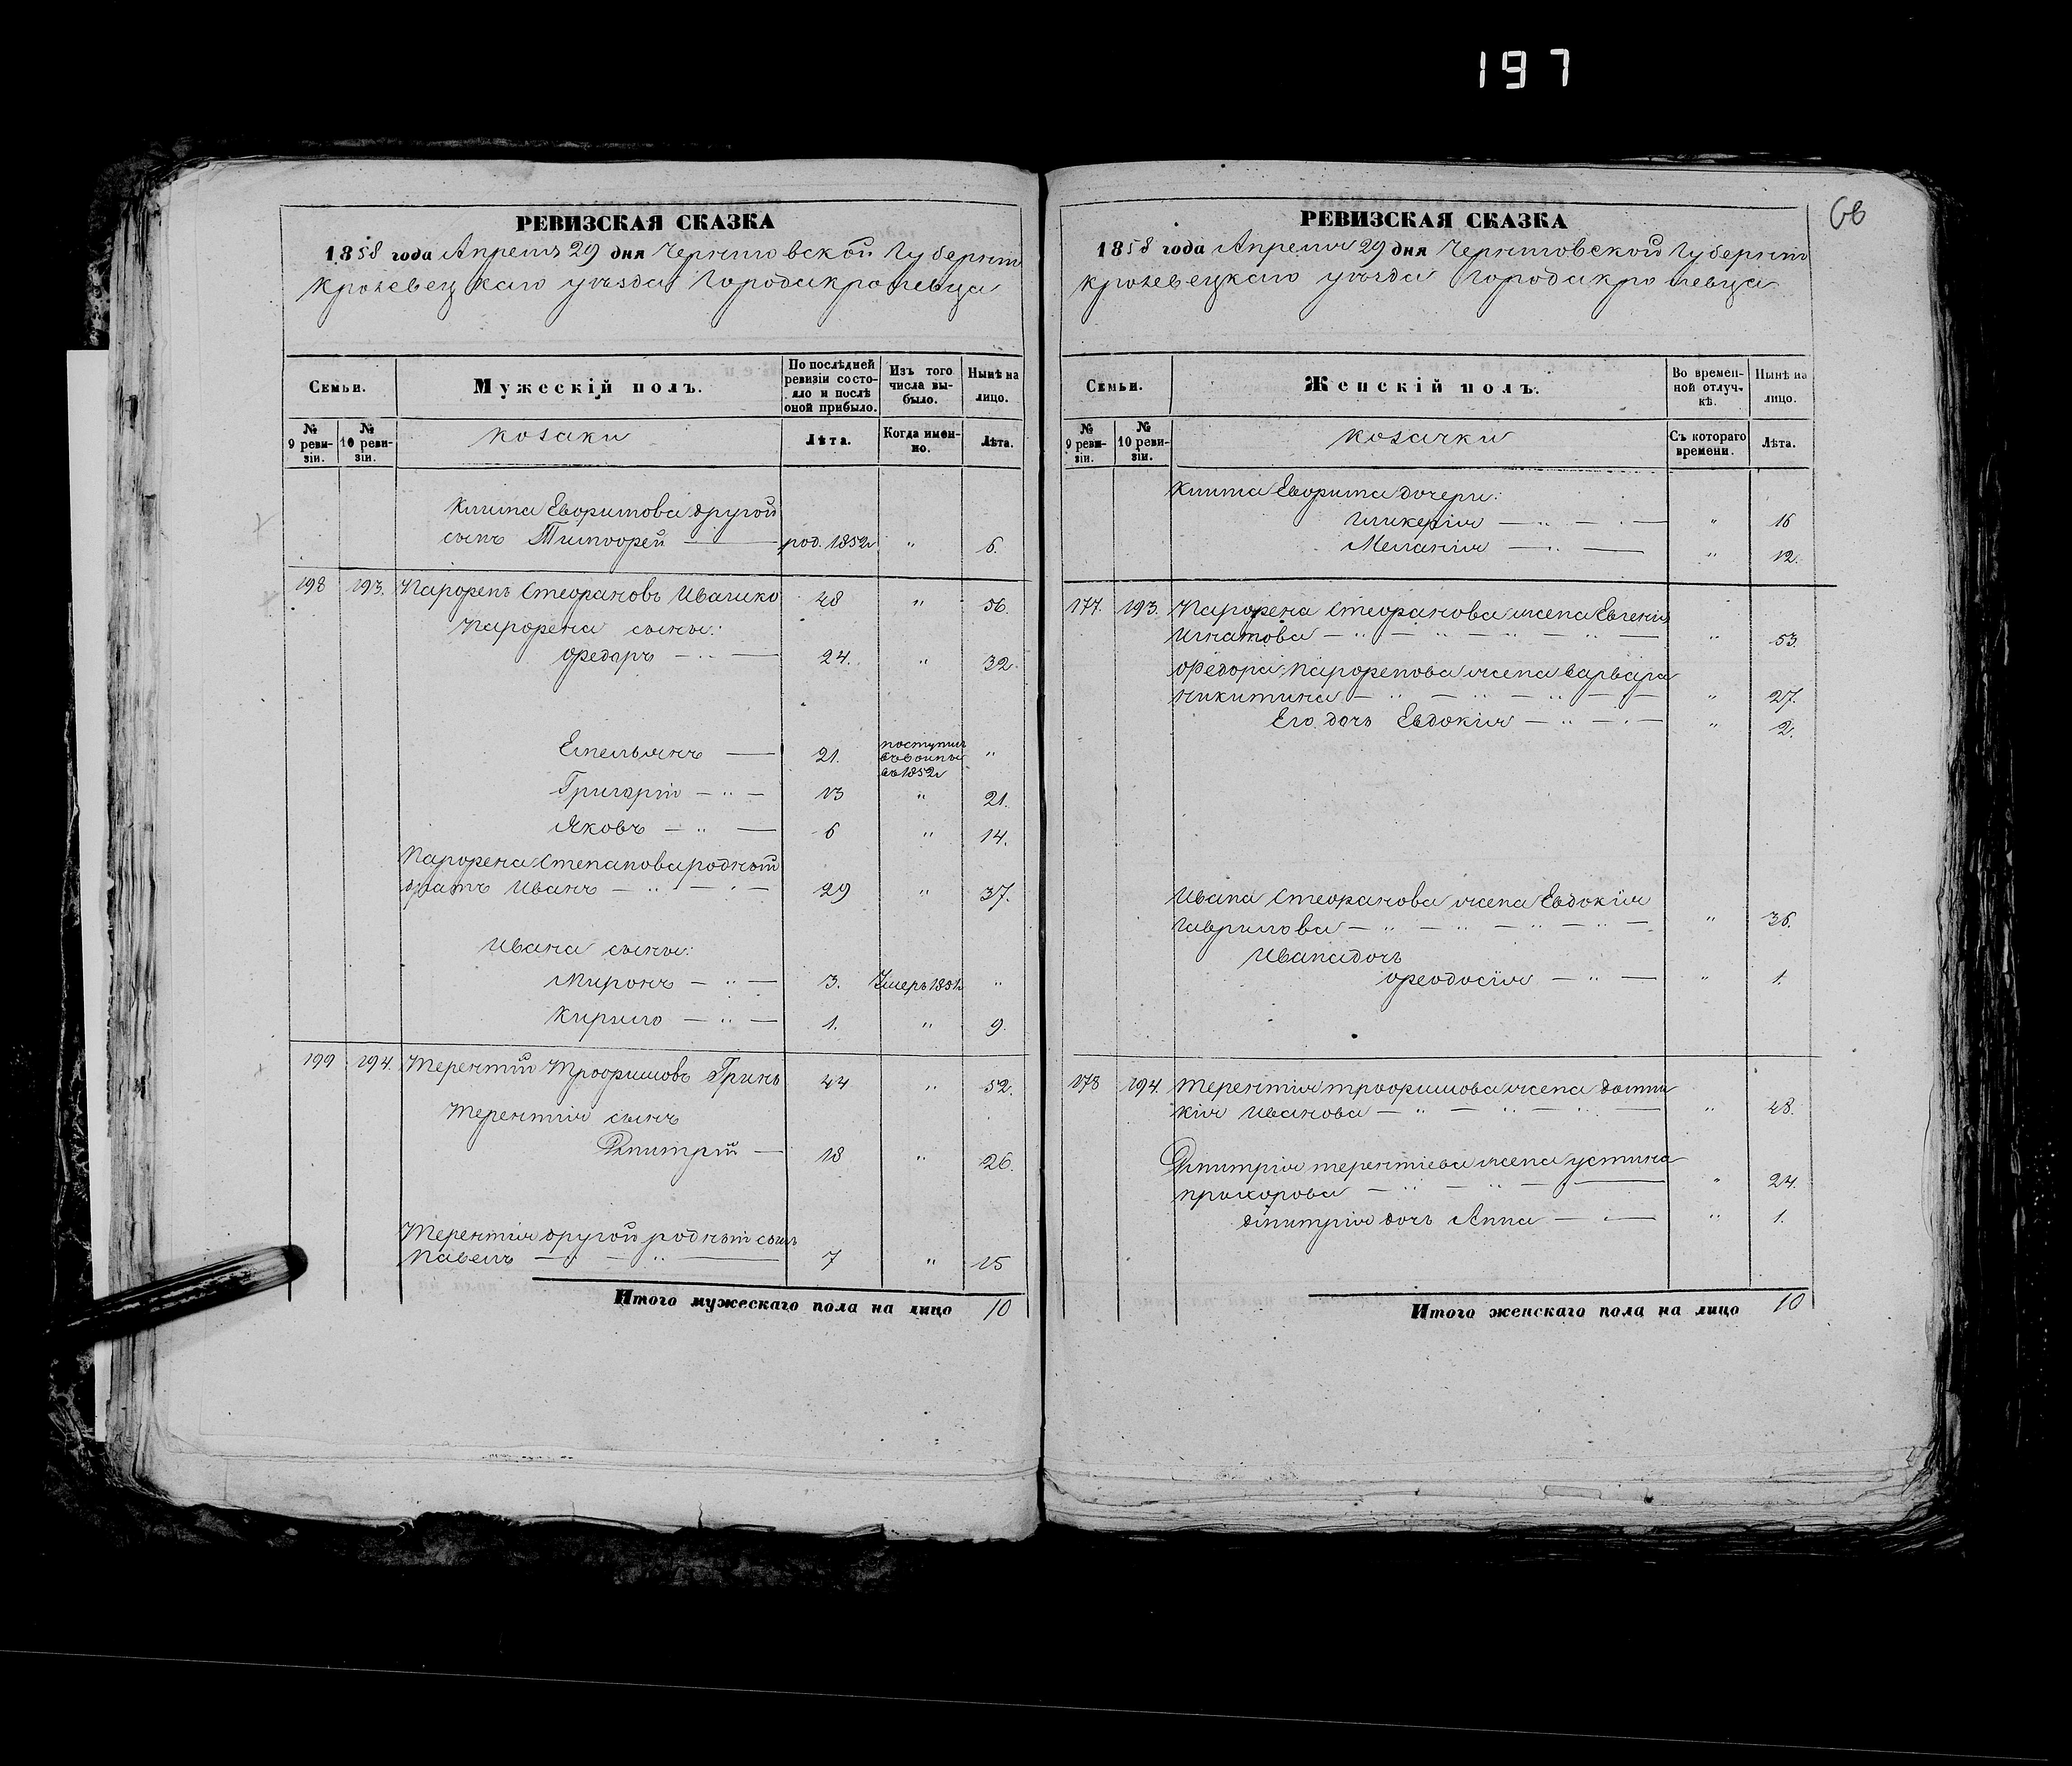 197
РЕВИЗСКАЯ СКАЗКА
1858 года Апреля 29 дня Черниговской Губернии
кролевецкаго уѣзда Города кролевца
Семьи.
Мужескій полъ.
По послѣдней ревизіи состояло и послѣ оной прибыло.
Изъ того числа выбыло.
Нынѣ на лицо.
№ 9 ревизіи.
№ 10 ревизіи.
козаки
Лѣта.
Когда именно.
Лѣта.
Клима Евфимова другой
сынъ Тимофей — род. 1852 " 6.
198 193. Парфенъ Стефановъ Ивашко 48 " 56.
Парфена сыны:
Федоръ — " — 24. " 32.
Емельянъ — 21. поступил въ 1852 "
Григорій — " — 13 " 21.
Яковъ — " — 6 " 14.
Парфена Степанова родный
братъ Иванъ — " — " — 29 " 37.
Ивана сыны:
Миронъ — " — 3. Умеръ 1851 "
Кирило — " — 1. " 9.
199 194. Терентій Трофимовъ Гринь 44 " 52.
Терентія сынъ
Дмитрій — 18 " 26.
Терентія другой родный сынъ
Павелъ — " — " — 7 " 15
Итого мужескаго пола на лицо 10
68
РЕВИЗСКАЯ СКАЗКА
1858 года Апреля 29 дня Черниговской Губернии
кролевецкаго уѣзда Города кролевца
Семьи.
Женскій полъ.
Во временной отлучкѣ.
Нынѣ на лицо.
№ 9 ревизіи.
№ 10 ревизіи.
козачки
Съ котораго времени.
Лѣта.
Клима дочери:
Гликерія — " — " — " 16
Меланія — " — " 12.
177. 193. Парфена Стефанова жена Евгенія
Игнатова — " — " — " — " — " 53.
Федора Парфенова жена варвара
никитина — " — " — " — " — " 27.
Его дочь Евдокія — " — " — " 2.
Ивана Стефанова жена Евдокія
гаврилова — " — " — " — " — " 36.
Ивана дочь
феодосія — " — " 1.
178 194. Терентія трофимова жена домникія Иванова — " — " — " — " 48.
Дмитрія терентіева жена устина
прохорова — " — " — " 24.
дмитрія дочь Анна — " — " 1.
Итого женскаго пола на лицо 10